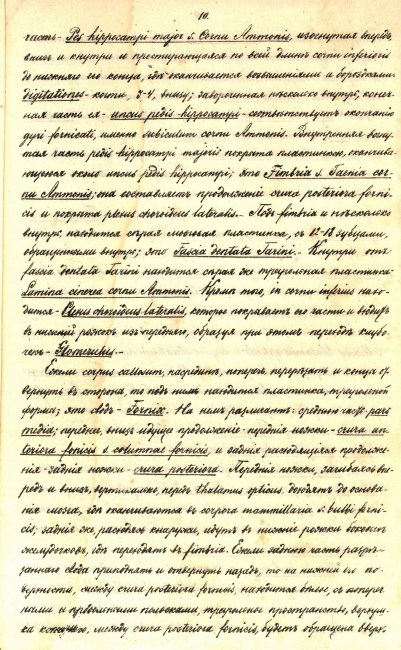 10.
часть - Pes hippocampi major s. Cornu Ammonis, изогнутая впередъ,
внизъ и кнутри и простирающаяся по всей длинѣ cornu inferioris
до нижняго его конца, гдѣ оканчивается возвышеніями и бороздками
digitationes - когти, 3-4, внизу; завороченная нѣсколько внутрь, конеч-
ная часть ея - uncus pedis hippocampi - соотвѣтствуетъ окончанію
gyri fornicati, именно subiculum cornu Ammonis. Внутренняя вогну-
тая часть pedis hippocampi majoris покрыта пластинкою, оканчива-
ющеюся около uncus pedis hippocampi; это Fimbria s. Taenia cor-
nu Ammonis; она составляетъ продолженіе crura posteriora forni-
cis и покрыта plexus choroideus lateralis. - Подъ fimbria и нѣсколько
внутрь, находится сѣрая мозговая пластинка, съ 12-13 зубцами,
обращенными внутрь; это Fascia dentata Tarini. - Кнутри отъ
fascia dentata Tarini находится сѣрая же треугольная пластинка:
Lamina cinerea cornu Ammonis. Кромѣ того, въ cornu inferius нахо-
дится - Plexus choroideus lateralis, которое покрываетъ его части и входитъ
въ нижній рожокъ изъ передняго, образуя при этомъ переходѣ клубо-
чекъ - Glomerulus. -
Ежели corpus callosum, посрединѣ, поперекъ перерѣзать и концы от-
вернуть въ стороны, то подъ нимъ находится пластинка, треугольной
формы; это сводъ - Fornix. На немъ различаютъ: среднюю часть - pars
media; переднее, внизъ идущее продолженіе - переднія ножки - crura an-
teriora fornicis s. columnae fornicis, и заднія расходящіяся продолже-
нія - заднія ножки - crura posteriora. Переднія ножки, загибаясь впе-
редъ и внизъ, вертикально, передъ thalamus opticus, доходятъ до основа-
нія мозга, гдѣ оканчиваются въ corpora mammillaria s. bulbi forni-
cis; заднія же, расходясь кнаружи, идутъ въ нижніе рожки боковыхъ
желудочковъ, гдѣ переходятъ въ fimbria. Ежели заднюю часть разрѣ-
заннаго свода приподнять и отвернуть назадъ, то на нижней его по-
верхности, между crura posteriora fornicis, находится бѣлое, съ попереч-
ными и прямыми полосками, треугольное пространство, вершин-
ка котораго, между crura posteriora fornicis, будетъ обращена вверхъ